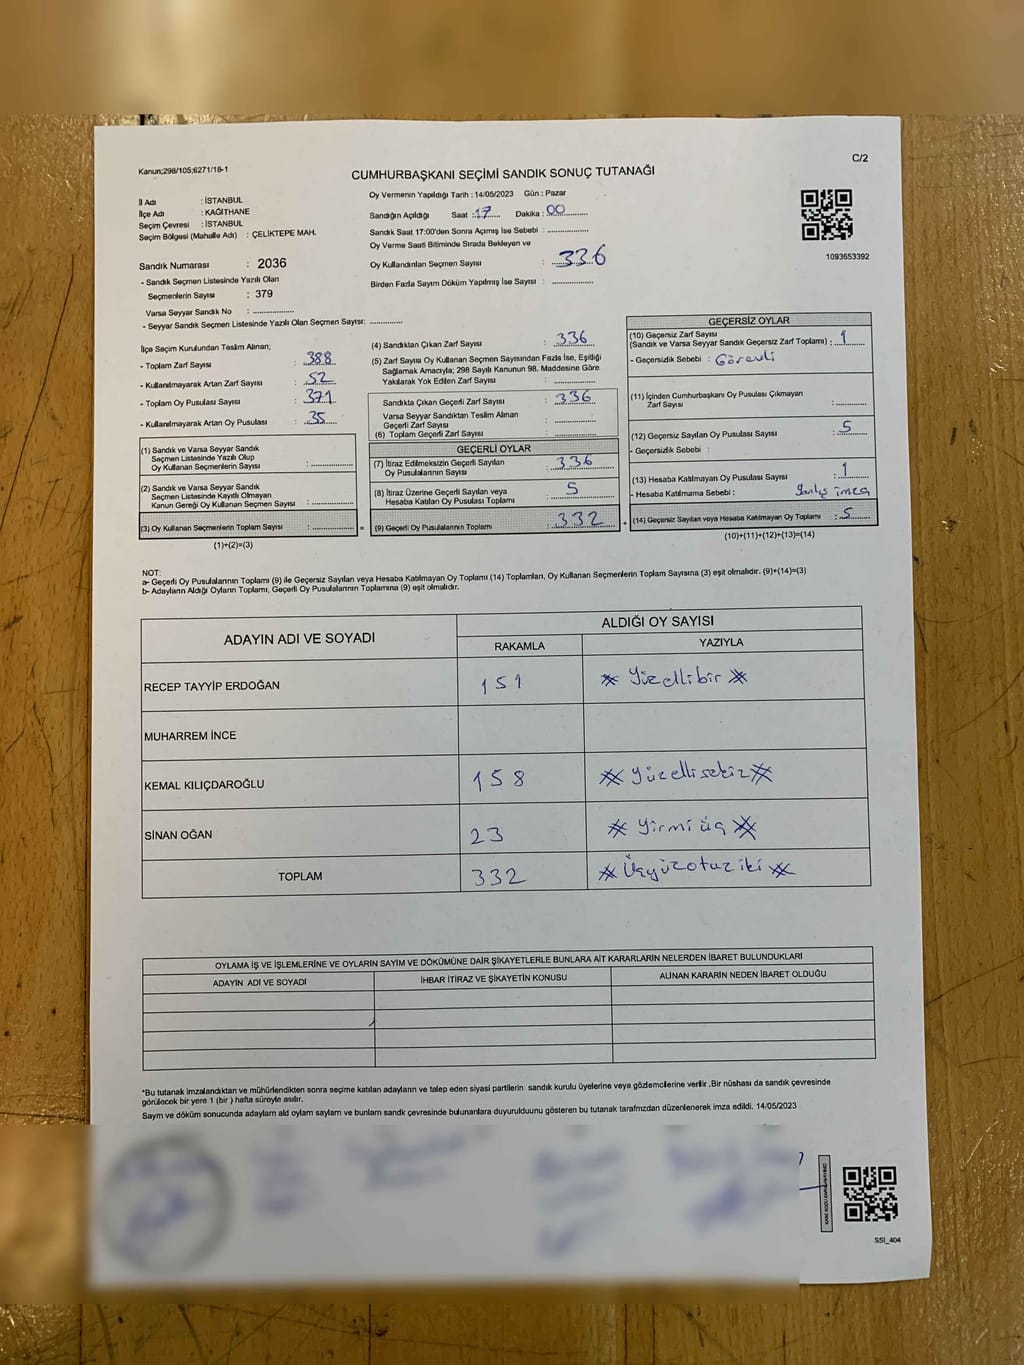 C/2
Kanun;298/105;6271/18-1
CUMHURBAŞKANI SEÇİMİ SANDIK SONUÇ TUTANAĞI
İl Adı : İSTANBUL
İlçe Adı : KAĞITHANE
Seçim Çevresi : İSTANBUL
Seçim Bölgesi (Mahalle Adı) : ÇELİKTEPE MAH.
Sandık Numarası : 2036
- Sandık Seçmen Listesinde Yazılı Olan
Seçmenlerin Sayısı : 379
Varsa Seyyar Sandık No :
- Seyyar Sandık Seçmen Listesinde Yazılı Olan Seçmen Sayısı:
Oy Vermenin Yapıldığı Tarih : 14/05/2023 Gün : Pazar
Sandığın Açıldığı Saat : 17 Dakika : 00
Sandık Saat 17:00'den Sonra Açımış İse Sebebi :
Oy Verme Saati Bitiminde Sırada Bekleyen ve
Oy Kullandırılan Seçmen Sayısı : 336
Birden Fazla Sayım Döküm Yapılmış İse Sayısı :
1093653392
İlçe Seçim Kurulundan Teslim Alınan;
- Toplam Zarf Sayısı : 388
- Kullanılmayarak Artan Zarf Sayısı : 52
- Toplam Oy Pusulası Sayısı : 371
- Kullanılmayarak Artan Oy Pusulası : 35
(1) Sandık ve Varsa Seyyar Sandık
Seçmen Listesinde Yazılı Olup
Oy Kullanan Seçmenlerin Sayısı :
(2) Sandık ve Varsa Seyyar Sandık
Seçmen Listesinde Kayıtlı Olmayan
Kanun Gereği Oy Kullanan Seçmen Sayısı :
(3) Oy Kullanan Seçmenlerin Toplam Sayısı : =
(1)+(2)=(3)
(4) Sandıktan Çıkan Zarf Sayısı : 336
(5) Zarf Sayısı Oy Kullanan Seçmen Sayısından Fazla İse, Eşitliği
Sağlamak Amacıyla; 298 Sayılı Kanunun 98. Maddesine Göre
Yakılarak Yok Edilen Zarf Sayısı :
Sandıkta Çıkan Geçerli Zarf Sayısı : 336
Varsa Seyyar Sandıktan Teslim Alınan
Geçerli Zarf Sayısı :
(6) Toplam Geçerli Zarf Sayısı :
GEÇERLİ OYLAR
(7) İtiraz Edilmeksizin Geçerli Sayılan
Oy Pusulalarının Sayısı : 336
(8) İtiraz Üzerine Geçerli Sayılan veya
Hesaba Katılan Oy Pusulası Toplamı : 5
(9) Geçerli Oy Pusulalarının Toplamı : 332 +
GEÇERSİZ OYLAR
(10) Geçersiz Zarf Sayısı
(Sandık ve Varsa Seyyar Sandık Geçersiz Zarf Toplamı) : 1
- Geçersizlik Sebebi : Görevli
(11) İçinden Cumhurbaşkanı Oy Pusulası Çıkmayan
Zarf Sayısı :
(12) Geçersiz Sayılan Oy Pusulası Sayısı : 5
- Geçersizlik Sebebi :
(13) Hesaba Katılmayan Oy Pusulası Sayısı : 1
- Hesaba Katılmama Sebebi : Yanlış imza
(14) Geçersiz Sayılan veya Hesaba Katılmayan Oy Toplamı : 5
(10)+(11)+(12)+(13)=(14)
NOT:
a- Geçerli Oy Pusulalarının Toplamı (9) ile Geçersiz Sayılan veya Hesaba Katılmayan Oy Toplamı (14) Toplamları, Oy Kullanan Seçmenlerin Toplam Sayısına (3) eşit olmalıdır. (9)+(14)=(3)
b- Adayların Aldığı Oyların Toplamı, Geçerli Oy Pusulalarının Toplamına (9) eşit olmalıdır.
ADAYIN ADI VE SOYADI
ALDIĞI OY SAYISI
RAKAMLA YAZIYLA
RECEP TAYYİP ERDOĞAN 151 Yüzellibir
MUHARREM İNCE
KEMAL KILIÇDAROĞLU 158 Yüzellisekiz
SİNAN OĞAN 23 Yirmi üç
TOPLAM 332 Üçyüzotuziki
OYLAMA İŞ VE İŞLEMLERİNE VE OYLARIN SAYIM VE DÖKÜMÜNE DAİR ŞİKAYETLERLE BUNLARA AİT KARARLARIN NELERDEN İBARET BULUNDUKLARI
ADAYIN ADI VE SOYADI İHBAR İTİRAZ VE ŞİKAYETİN KONUSU ALINAN KARARIN NEDEN İBARET OLDUĞU
*Bu tutanak imzalandıktan ve mühürlendikten sonra seçime katılan adayların ve talep eden siyasi partilerin sandık kurulu üyelerine veya gözlemcilerine verilir .Bir nüshası da sandık çevresinde
görülecek bir yere 1 (bir ) hafta süreyle asılır.
Sayım ve döküm sonucunda adayların ald oylam saylam ve bunlam sandik çevresinde bulunanlara duyurulduunu gösteren bu tutanak tarafmzdan düzenlenerek imza edildi. 14/05/2023
SSI_404